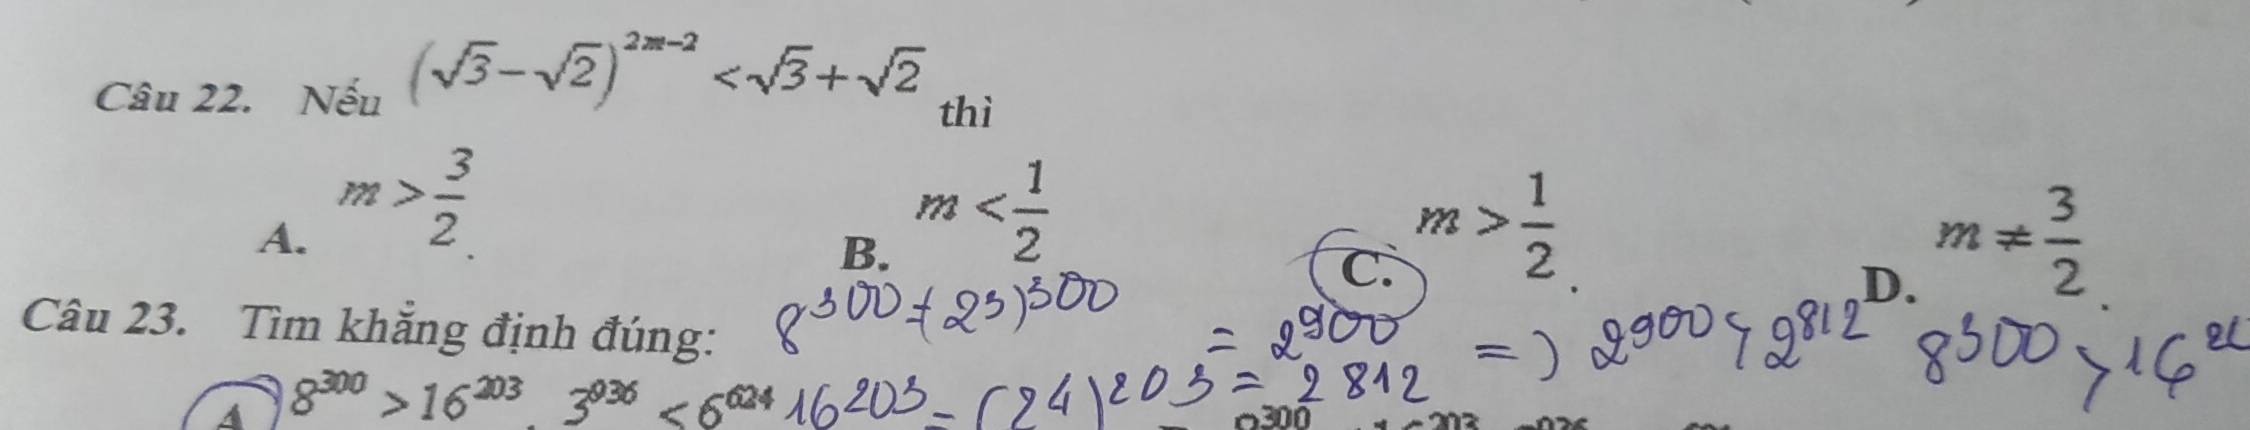 Câu 22. Nếu (√3−√2)^{2m−2} < √3+√2 thì
A. m > 3/2. B. m < 1/2 C. m > 1/2. D. m ≠ 3/2.
Câu 23. Tìm khẳng định đúng: 8^{300} = (2^3)^{300} = 2^{900} => 2^{900} > 2^{812} 8^{300} > 16^{20
A 8^{300} > 16^{203}. 3^{936} < 6^{624} 16^{203} = (2^4)^{203} = 2^{812}